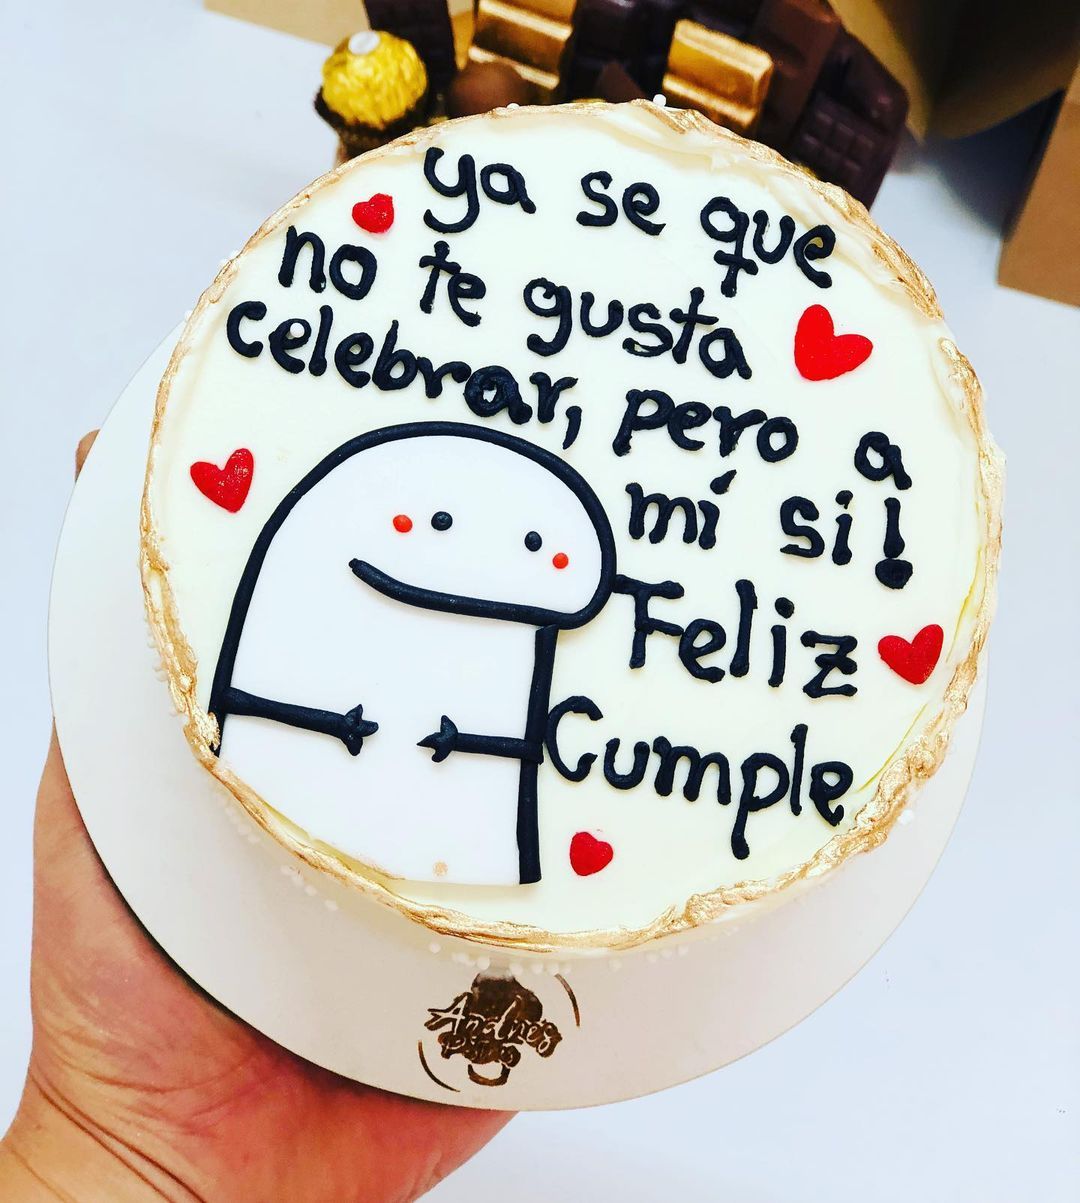 ya se que
no te gusta
celebrar, pero a
mí si!
Feliz
Cumple
Andrés